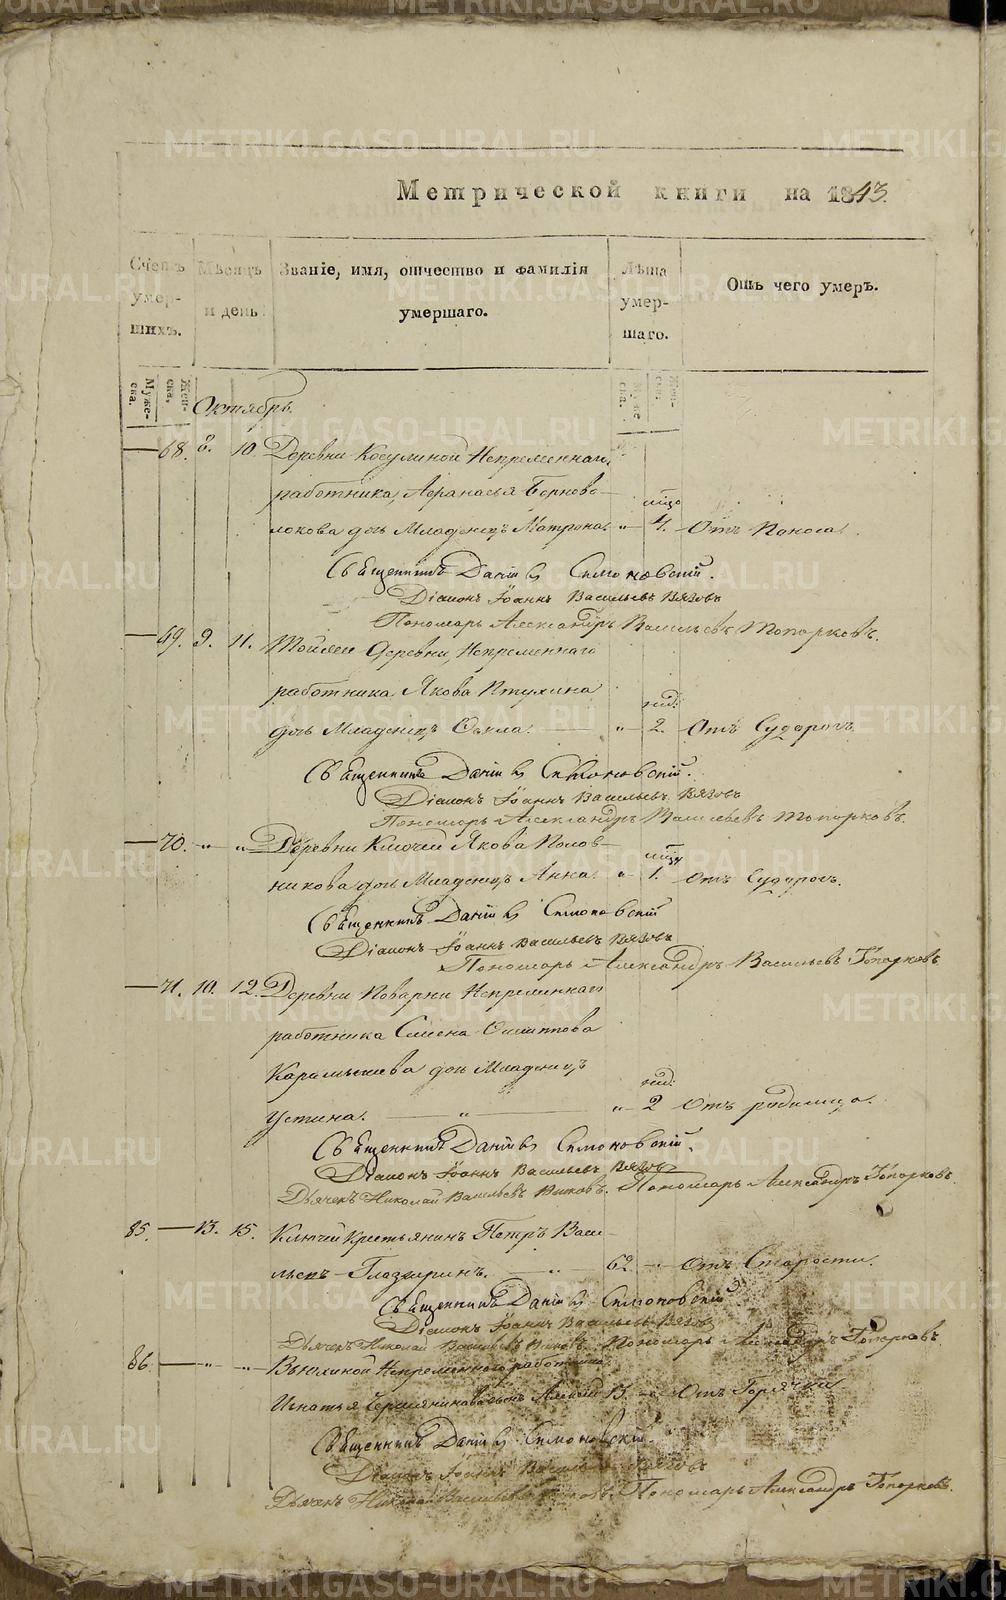 Метрической книги на 1843.
Счетъ умершихъ.
Мѣсяцъ и день
Званіе, имя, отчество и фамилія умершаго.
Лѣта умершаго.
Отъ чего умеръ.
Муже-ска.
Жен-ска.
Октябрь.
68. 8. 10. Деревни Косулиной Непременнаго
работника, Афанасья Черново-
локова дочь Младенецъ Матрона. „ 4. Отъ Поноса.
Священникъ Даніилъ Симоновскій.
Діаконъ Іоаннъ Васильевъ Вязовъ
Пономарь Александръ Васильевъ Топорковъ.
69. 9. 11. Деревни, Непременнаго
работника Якова Птухина
дочь Младенецъ Фекла. „ нед: 2. Отъ Судорогъ.
Священникъ Даніилъ Симоновскій.
Діаконъ Іоаннъ Васильевъ Вязовъ
Пономарь Александръ Васильевъ Топорковъ.
70. „ „ Деревни Ключей Якова Полов-
никова дочь Младенецъ Анна. „ 1. Отъ Судорогъ.
Священникъ Даніилъ Симоновскій
Діаконъ Іоаннъ Васильевъ Вязовъ
Пономарь Александръ Васильевъ Топорковъ
71. 10. 12. Деревни Поварни Непременнаго
работника Семена Филиппова
дочь Младенецъ
Устина. „ „ нед: 2 Отъ родимца.
Священникъ Даніилъ Симоновскій.
Діаконъ Іоаннъ Васильевъ Вязовъ
Дьячекъ Николай Васильевъ Пономарь Александръ Топорковъ.
85. 13. 15. Ключей Крестьянинъ Петръ Васи-
льевъ Глазыринъ. „ 60. „ Отъ Старости.
Священникъ Даніилъ Симоновскій
Діаконъ Іоаннъ Васильевъ Вязовъ
Дьячекъ Николай Васильевъ Пономарь Александръ Топорковъ.
86. „ „ Вьюхиной Непременнаго работника
Игнатья сынъ Алексей 13. „ Отъ Горячки
Священникъ Даніилъ Симоновскій.
Діаконъ Іоаннъ Васильевъ Вязовъ
Дьячекъ Николай Васильевъ Пономарь Александръ Топорковъ.
METRIKI.GASO-URAL.RU